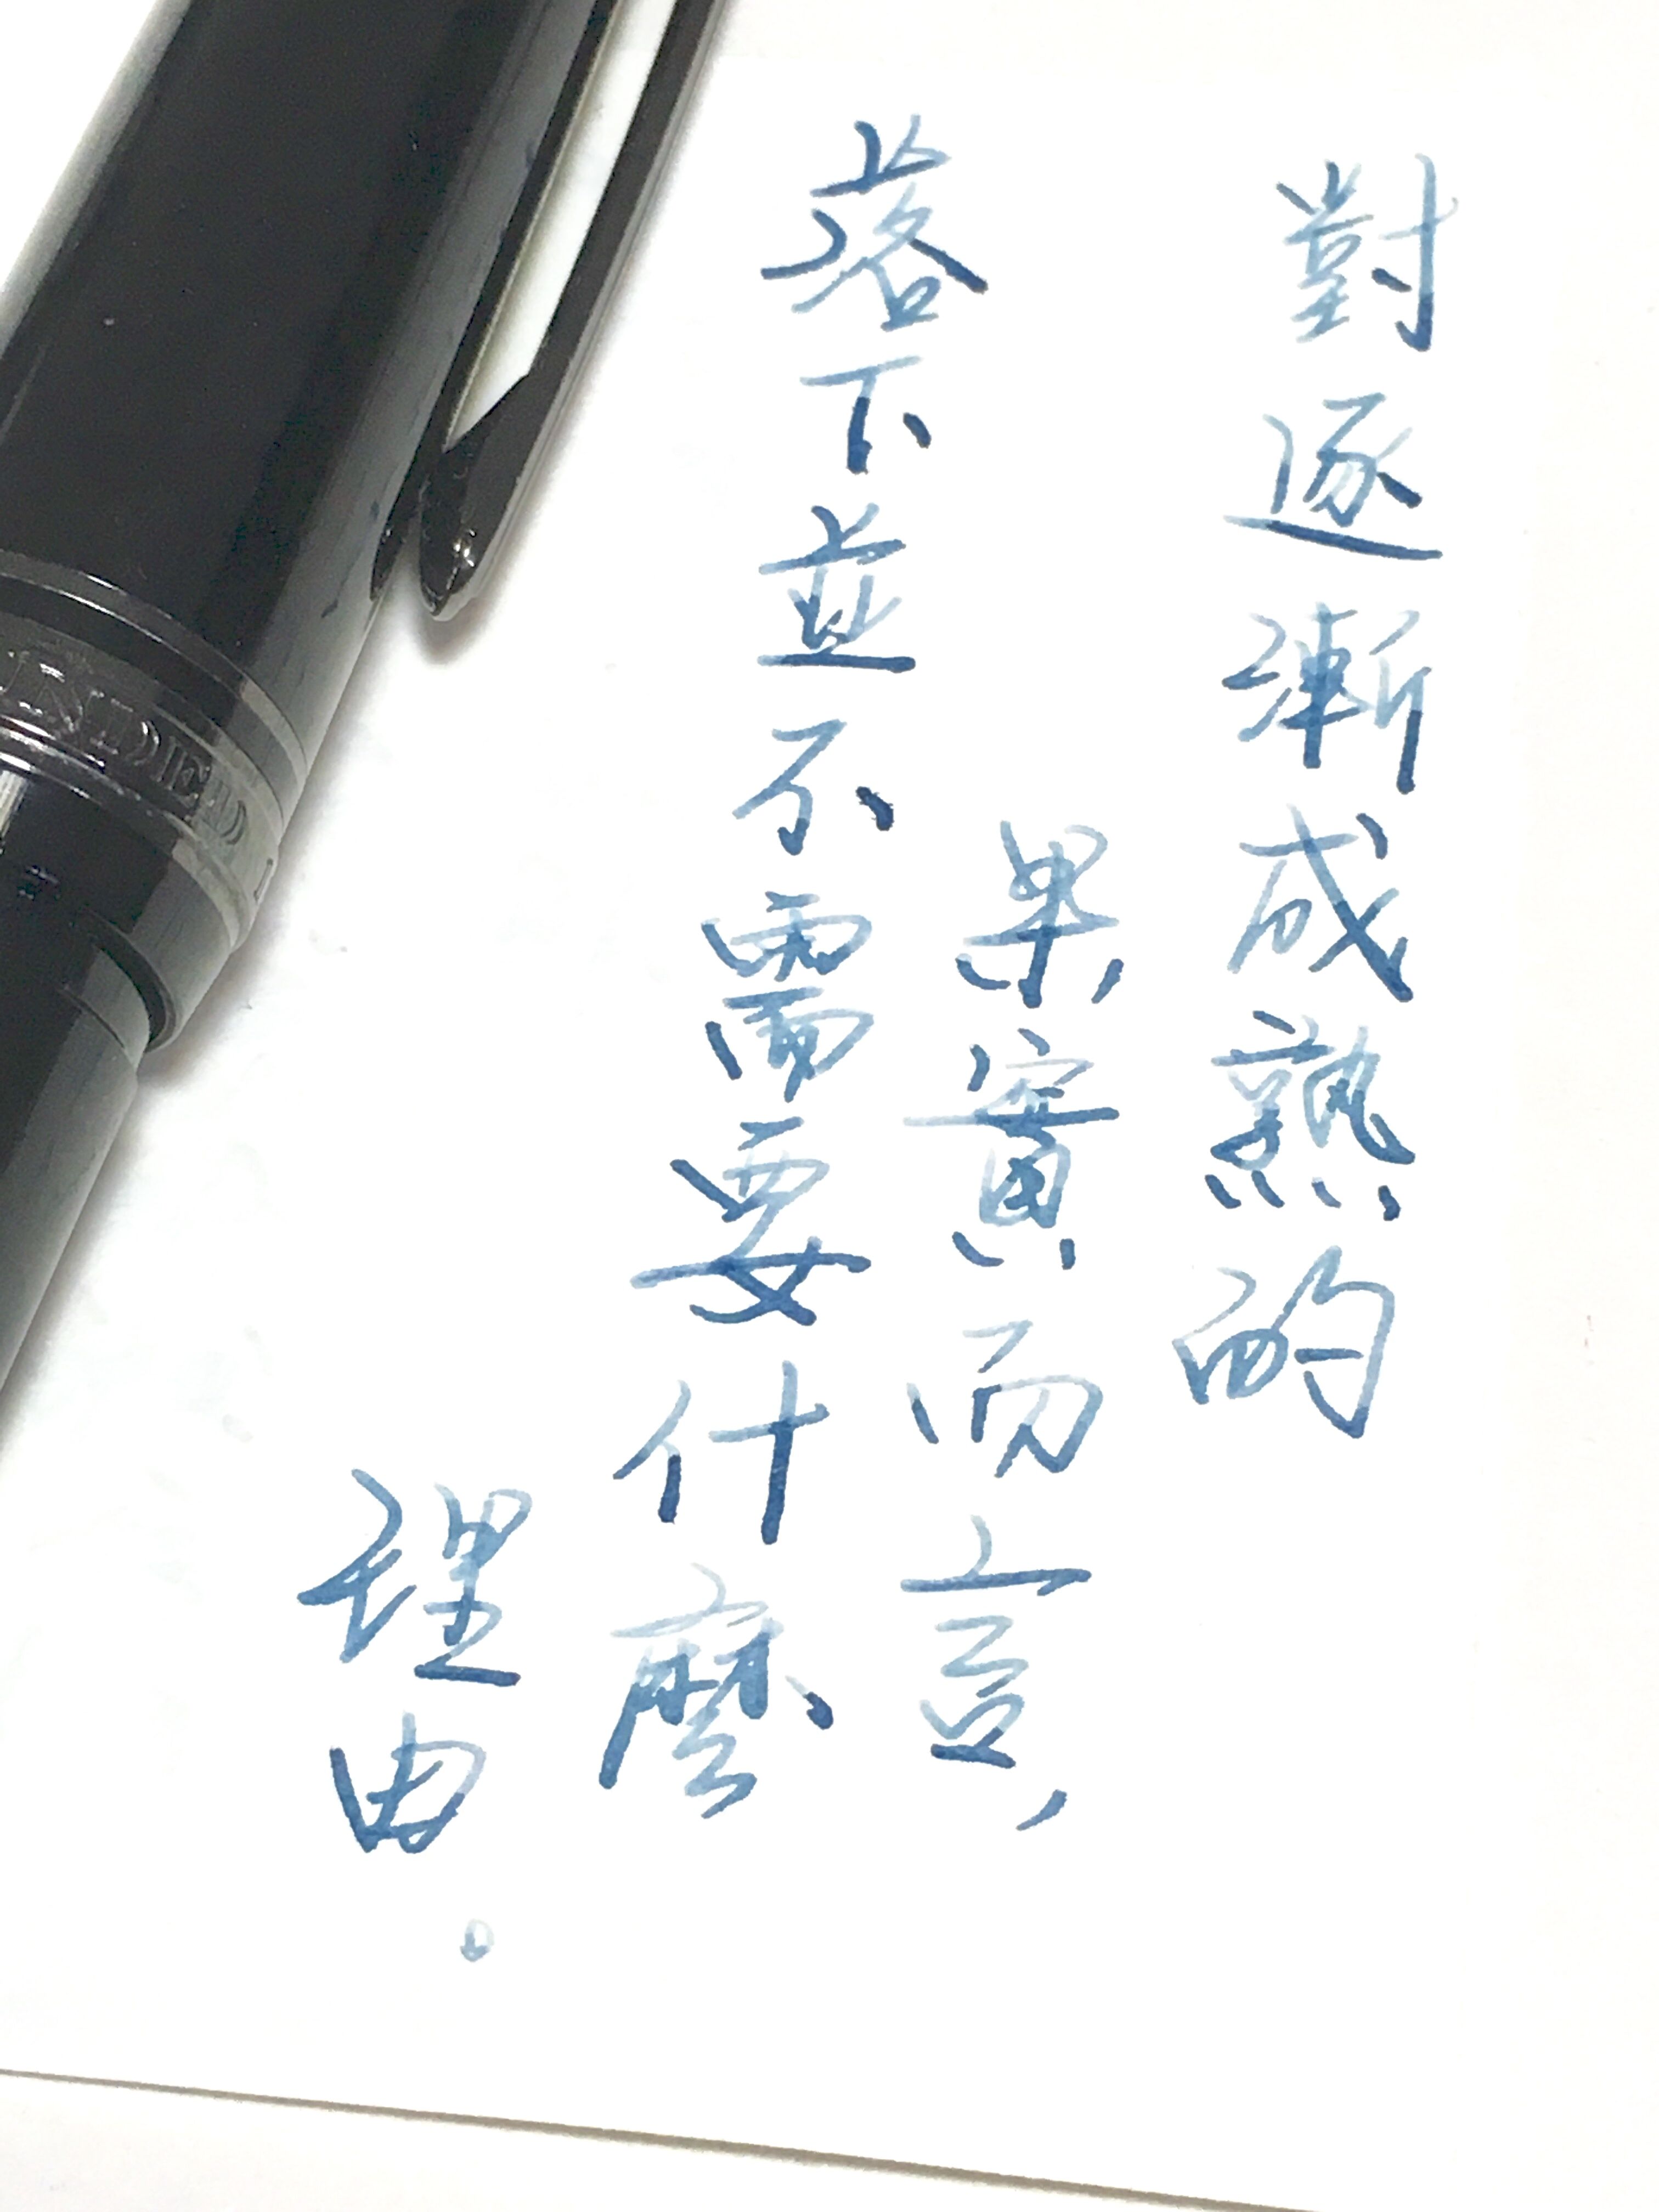 對逐漸成熟的
果實而言，
落下並不需要什麼
理由。
NDED